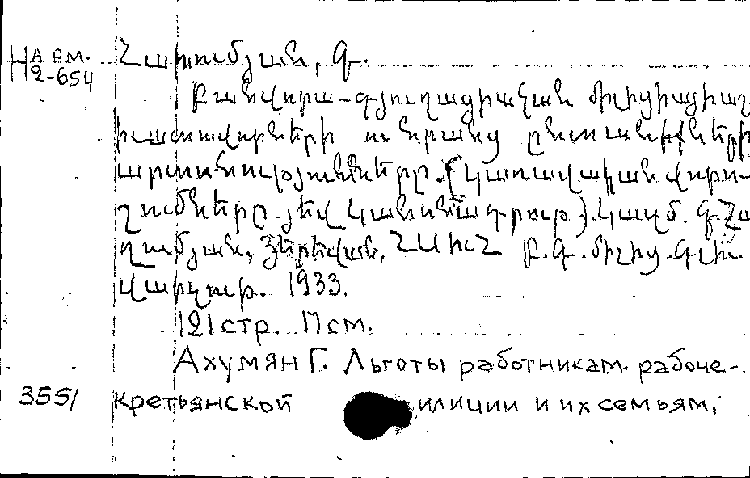 На ем. Հախումյան, Գ.
2-654
Բանվորա-գյուղացիական միլիցիայի աշ
խատավորների ու նրանց ընտանիքների
արտոնությունները. (Կառավական վորո-
շումները յեվ կանոնագրութ.). Կազմ. Գ. Հա
խումյան, Յերեվան, ՀՍԽՀ Բ.Գ. միլից. գլխ.
վարչութ. 1933.
121 стр. Псм.
Ахумян Г. Льготы работникам рабоче-
3551 крестьянской илиции и их семьям,